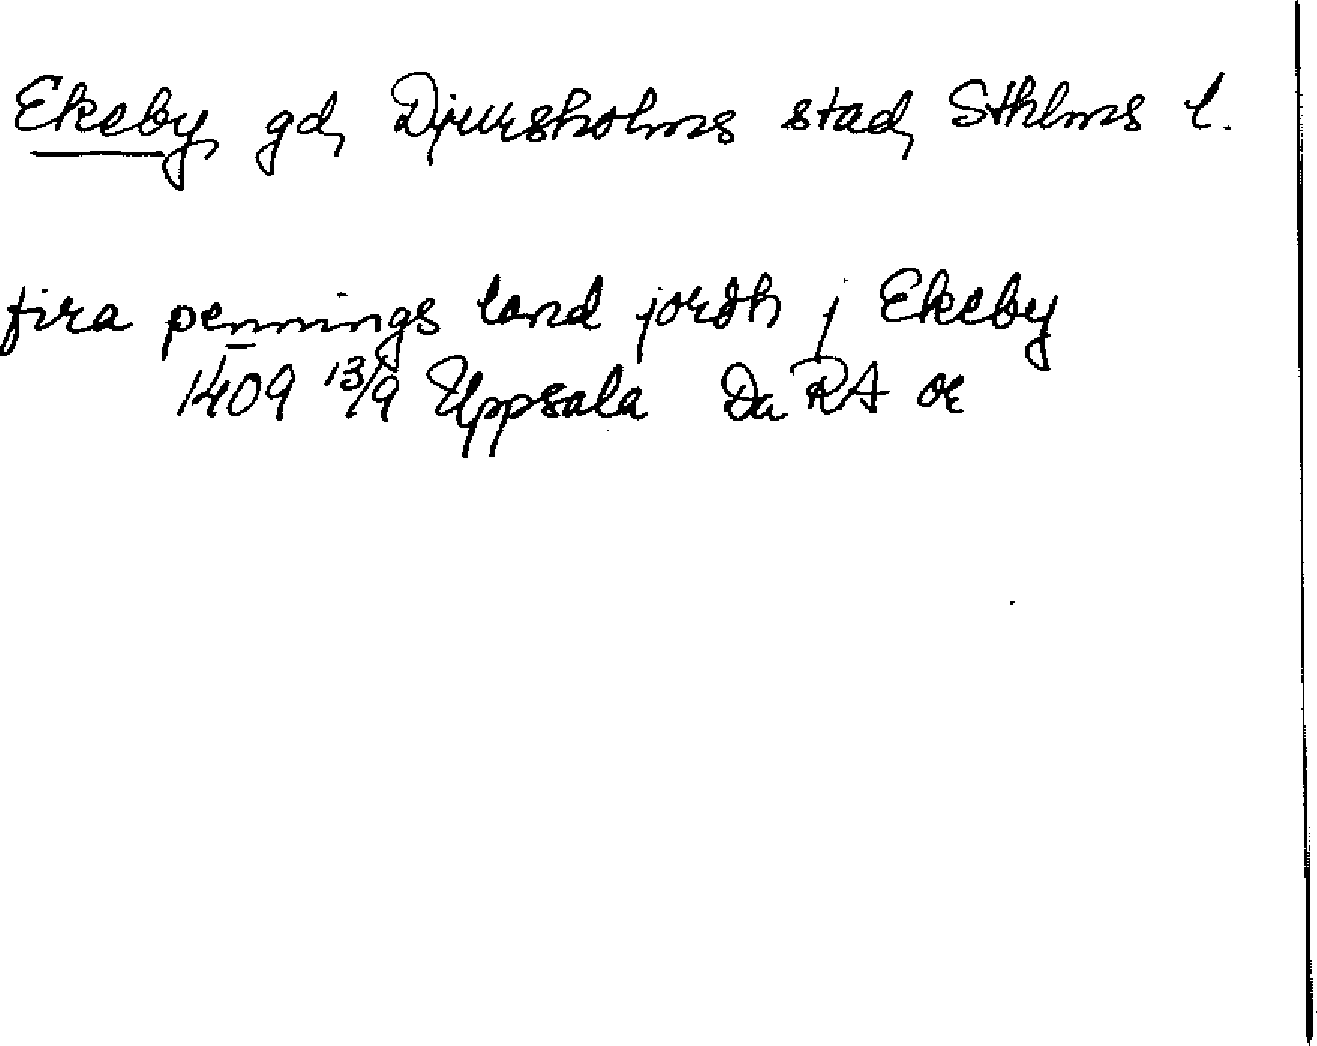 Ekeby, gd, Djursholms stad, Sthlms l.
fira pennings land jordh j Ekeby
1409 13/9 Uppsala Da RA or